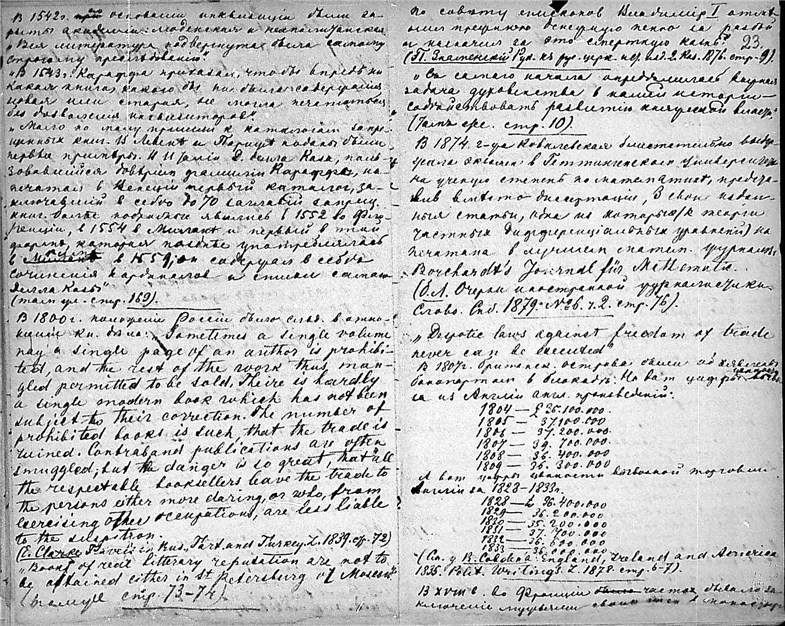 В 1542г. при основании инквизиции были за-
крыты академии: моденская и неаполитанская
„Вся литература подвергнута была самому
строгому преследованию".
„В 1543г. Караффа приказал, чтобъ впредь ни-
какая книга, какого бъ ни было содержания
новая или старая, не могла печататься
без дозволения инквизиторов"
„Мало по малу пришли к каталогам запре-
щенных книг. В и Париже поданы были
первые примеры. делла Каза, поль-
зовавшийся доверием фамилии Караффа, на-
печатал в Венеции первый каталог, за-
ключавший в себе до 70 заглавий запрещ.
книг. более подробные явились в 1552 во Фло-
ренции, в 1554 в Милане и первый в той
форме, которая позднее употреблялась
в 1559; он содержал в себе
сочинения кардиналов и стихи самого
делла Казы"
(там же стр. 169).
В 1800г. положение России было след. в отно-
шении кн. дела: „Sometimes a single volume
nay a single page of an author is prohibi-
ted, and the rest of the work thus man-
gled permitted to be sold. Theire is hardly
a single modern book which has not been
subject to their correction. The number of
prohibited books is such, that the trade is
ruined. Contraband publications are often
smuggled; but the danger is so great, that all
the respectable booksellers leave the trade to
the persons either more daring, or who, from
exercising other occupations, are less liable
to the suspition.
(E. Clarke Travels in Rus, Tart. and Turkey. L. 1839. ор. 72)
„Books of real litterary reputation are not to
be obtained either in St Petersburg or Moscow"
(там же стр. 73-74)
По совету епископов Владимир I отме-
нил прежнюю денежную пеню за разбои
и назначил за это смертную казнь". 23
(П. Знаменский Рук. къ рус. церк. ист. изд. 2. Каз. 1876. стр. 9).
„Съ самаго начала определилась важная
задача духовенства в нашей истории—
содействовать развитию княжеской власти".
(Тамъ же. стр. 10).
В 1874. г-жа Ковалевская блистательно выдер-
жала экзамен в Геттингенском Университете
на ученую степень по математике, предста-
вив вместо диссертации, 3 свои издан-
ныя статьи, одна из которых (к теории
частных дифференциальных уравнений) на-
печатана в лучшем матем. журнале
Borchardt's Journal für Methemtik.
(О. Л. Очерки иностранной журналистики.
Слово. Спб. 1879. №6. ч. 2. стр. 76).
„Despotic laws against freedom of trade
never can be executed"
В 1807г. британск. острова были объявлены
Бонапартом в блокаде. Но вот цифры вывоза
из Англии англ. произведений:
1804 — £ 36.100.000.
1805 — 37.100.000
1806 — 37.200.000.
1807 — 39.700.000
1808 — 36.400.000
1809 — 36.300.000
А вот цифры ценности вывозной торговли
Англии за 1828-1833г.
1828 — £ 36.400.000
1829 — 36.200.000
1830 — 35.200.000
1831 — 37.700.000
1832 — 36.600.000
1833 — 36.000.000
(См. у В. Cobden. England, Ireland, and America
1835. Polit. Writings. L. 1878. стр. 6-7).
В XVIII в. во Франции часто бывало за-
ключение мужьями своих жен в монастыр